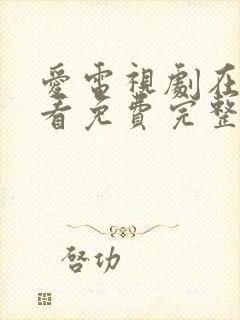 愛電視劇在
看免費完整
啓功